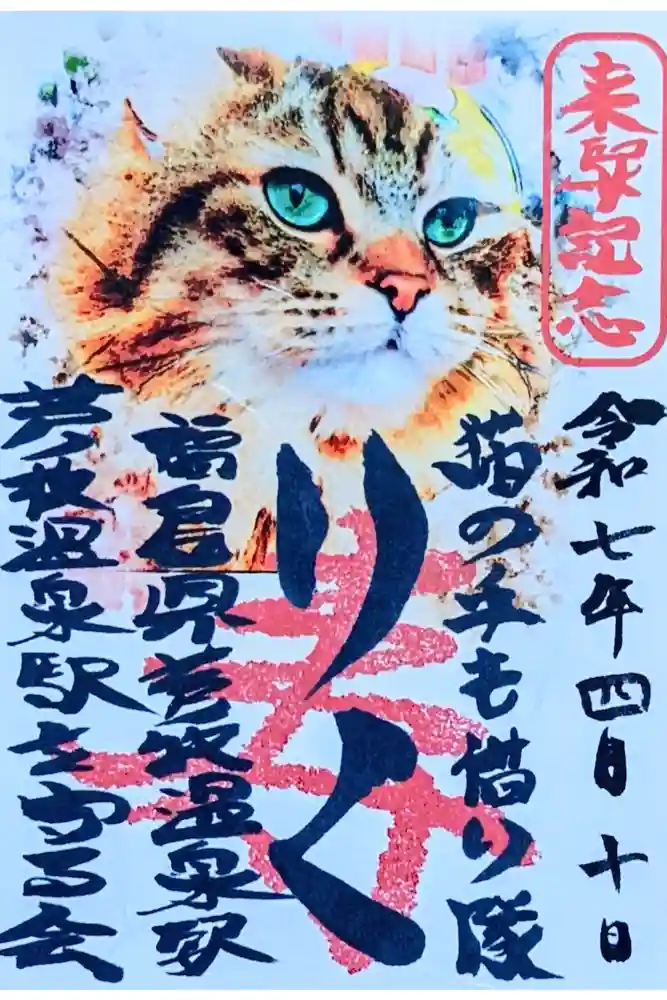 来駅記念
令和七年四月十日
猫の手も借り隊
りく
福島県芦ノ牧温泉駅
芦ノ牧温泉駅を守る会